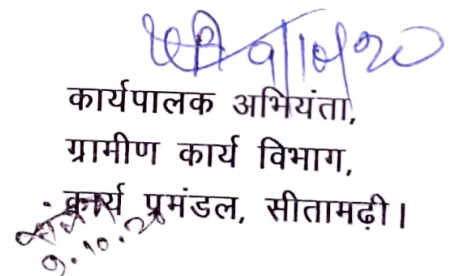 9/10/20
कार्यपालक अभियंता,
ग्रामीण कार्य विभाग,
कार्य प्रमंडल, सीतामढ़ी।
9.10.20